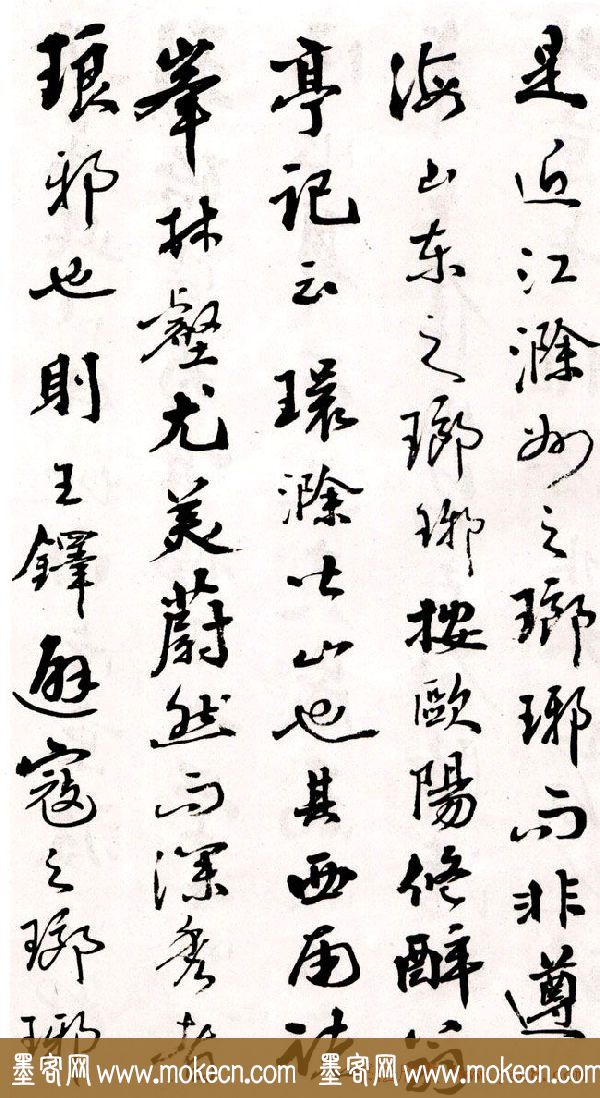 是近江滁州之瑯琊而非遵
海山东之瑯琊按歐陽修醉翁
亭记云環滁皆山也其西南诸
峯林壑尤美蔚然而深秀者
琅邪也則王鐸避寇之瑯琊
墨客网 www.mokecn.com 墨客网 www.mokecn.com